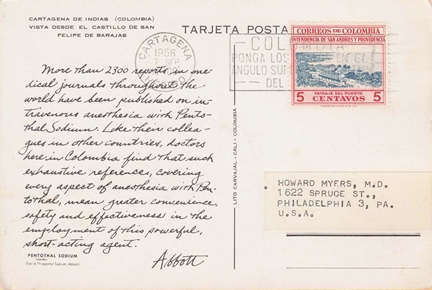 CARTAGENA DE INDIAS (COLOMBIA)
VISTA DESDE EL CASTILLO DE SAN
FELIPE DE BARAJAS
TARJETA POSTAL
More than 2300 reports in me
dical journals throughout the
world have been published on in-
travenous anesthesia with Pento-
thal Sodium. Like their collea-
gues in other countries, doctors
here in Colombia find that such
exhaustive references, covering
every aspect of anesthesia with Pen-
tothal, mean greater convenience,
safety and effectiveness in the
employment of this powerful,
short-acting agent.
Abbott
PENTOTHAL SODIUM
CARTAGENA
1956
COL
PONGA LOS
ANGULO SUP
DEL
CORREOS DE COLOMBIA
INTENDENCIA DE SAN ANDRES Y PROVIDENCIA
PAISAJE DEL PUERTO
5 CENTAVOS 5
LITO CARVAJAL - CALI - COLOMBIA
HOWARD MYERS, M.D.
1622 SPRUCE ST.,
PHILADELPHIA 3, PA.
U.S.A.